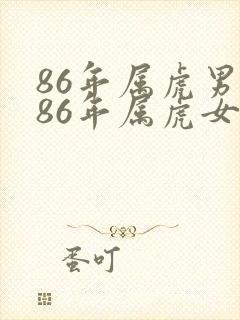 86年属虎男
86年属虎女
蛋叮